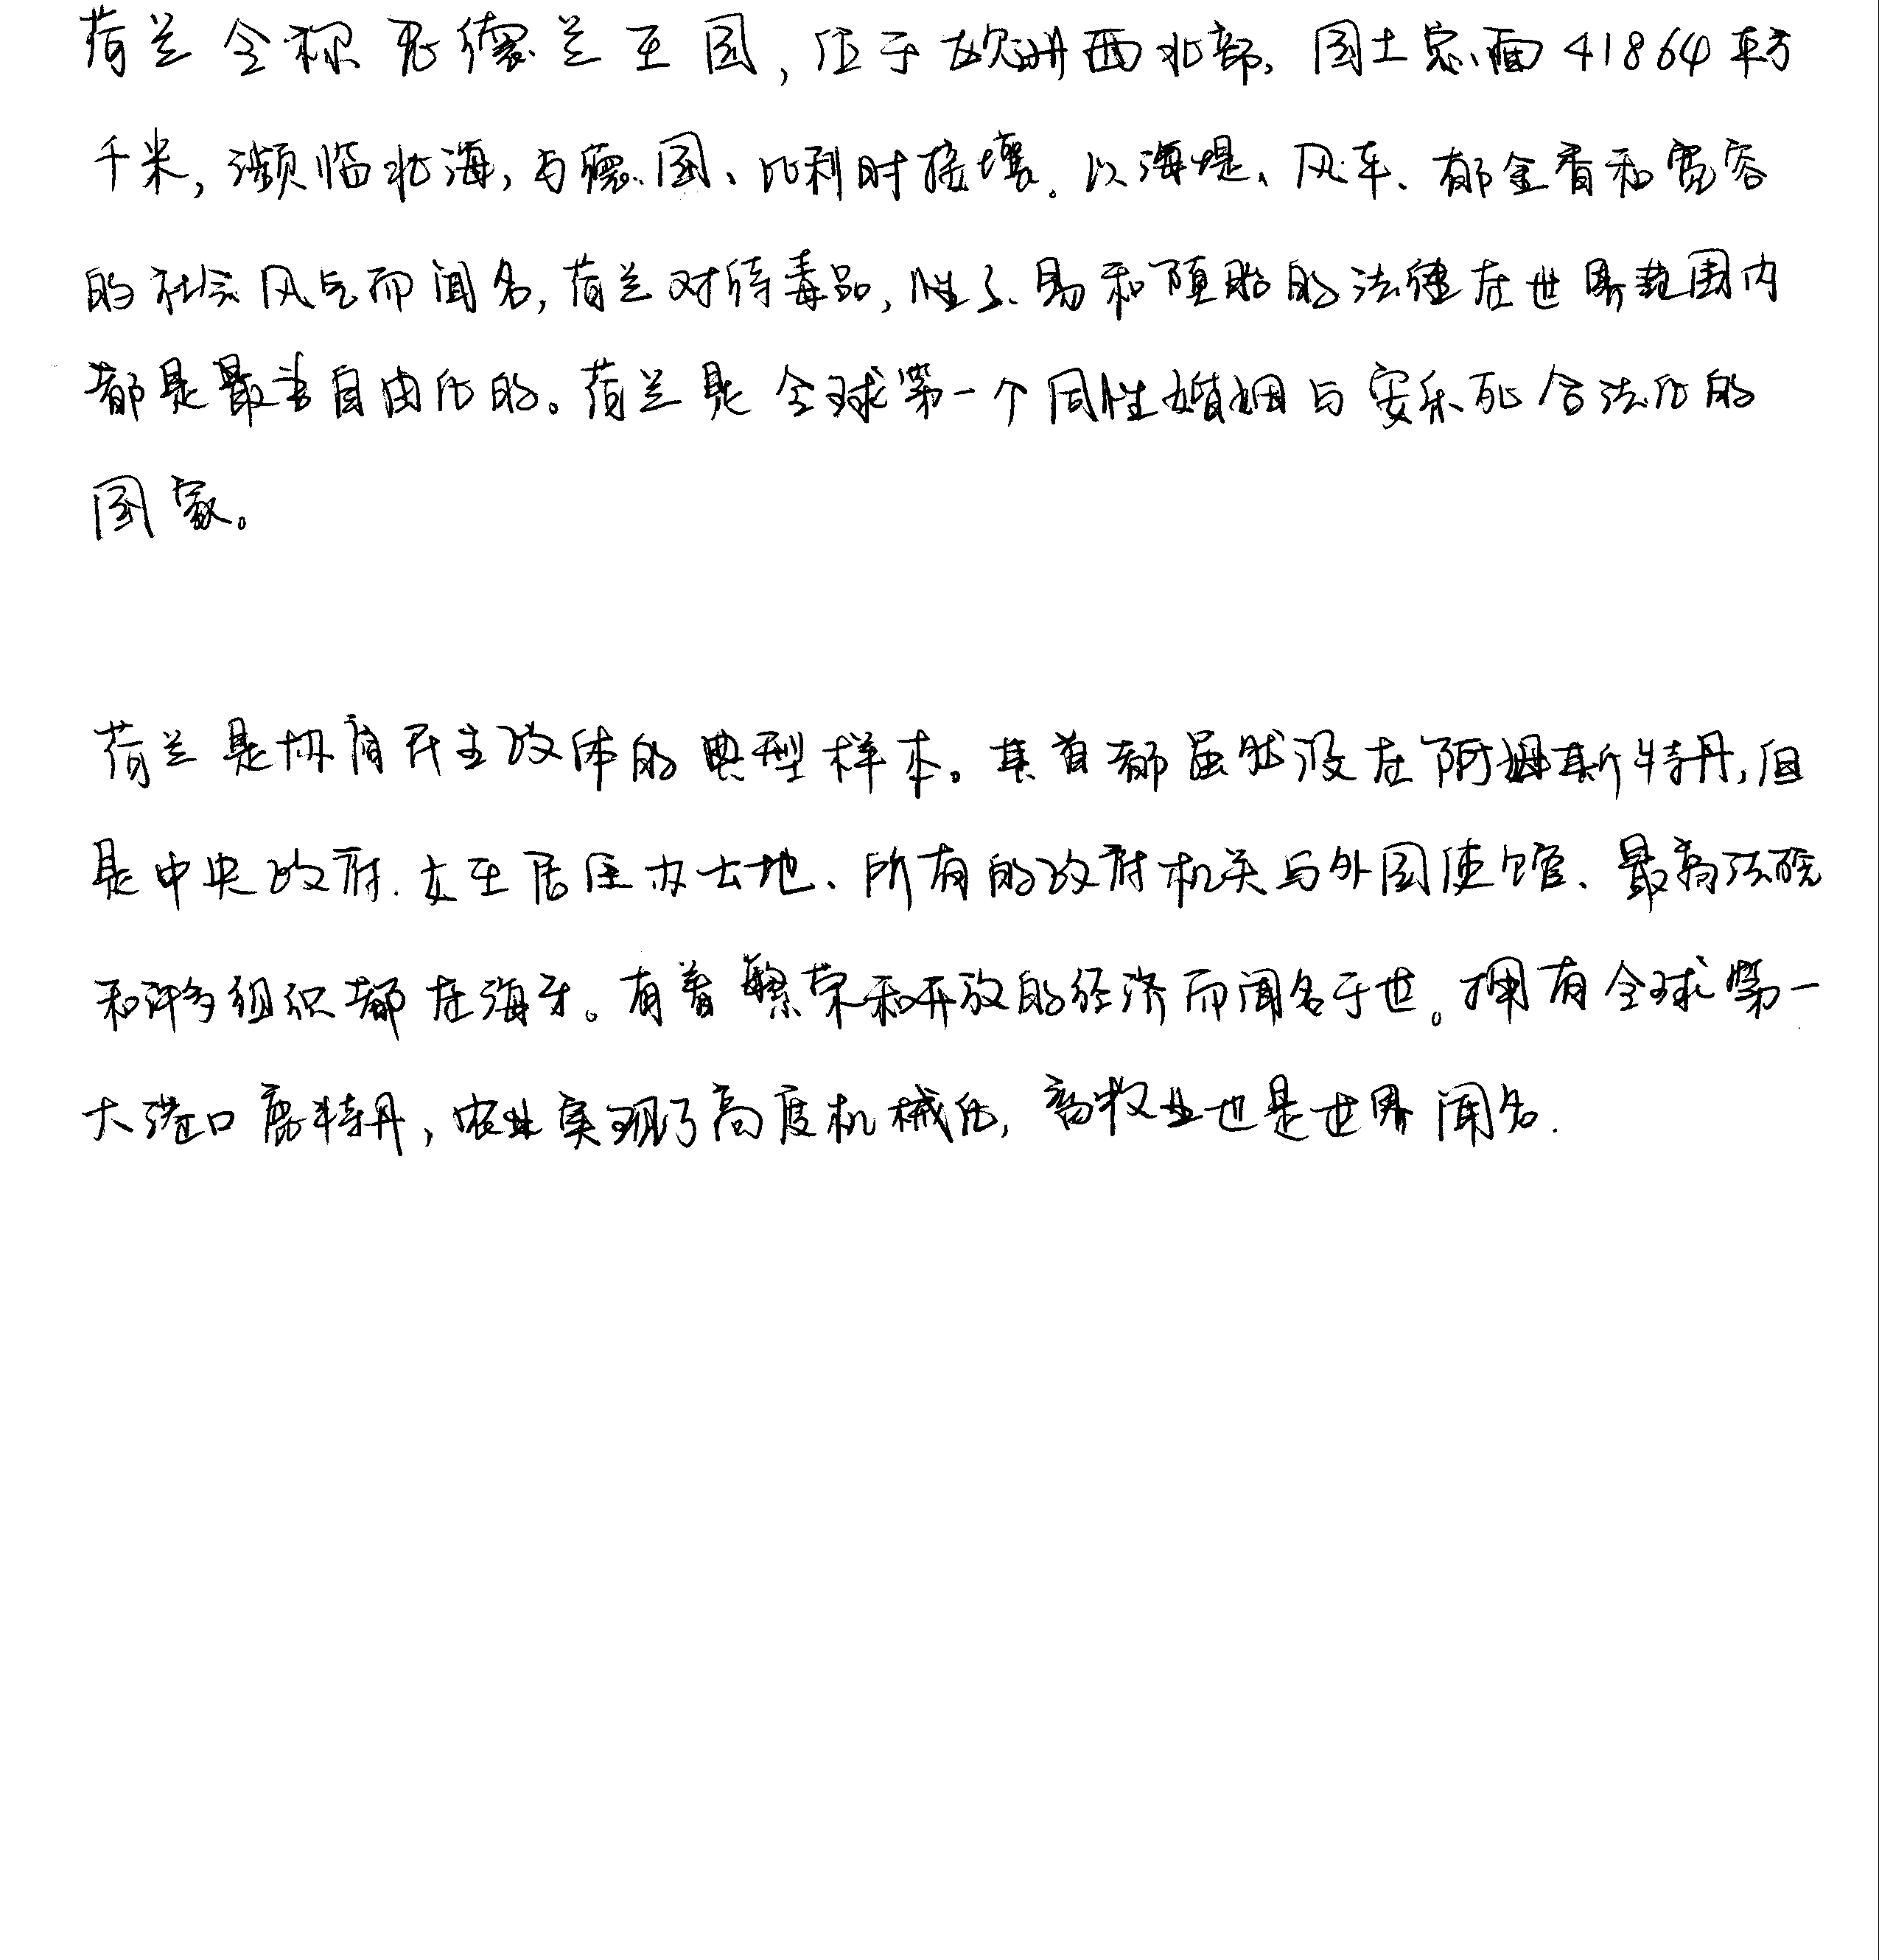 荷兰全称尼德兰王国，位于欧洲西北部，国土总面41864平方
千米，濒临北海，与德国、比利时接壤。以海堤、风车、郁金香和宽容
的社会风气而闻名，荷兰对待毒品，性交易和堕胎的法律在世界范围内
都是最为自由化的。荷兰是全球第一个同性婚姻与安乐死合法化的
国家。
荷兰是协商民主政体的典型样本。其首都虽然设在阿姆斯特丹，但
是中央政府、女王居住办公地、所有的政府机关与外国使馆、最高法院
和许多组织都在海牙。有着繁荣和开放的经济而闻名于世。拥有全球第一
大港口鹿特丹，农业实现了高度机械化，畜牧业也是世界闻名.